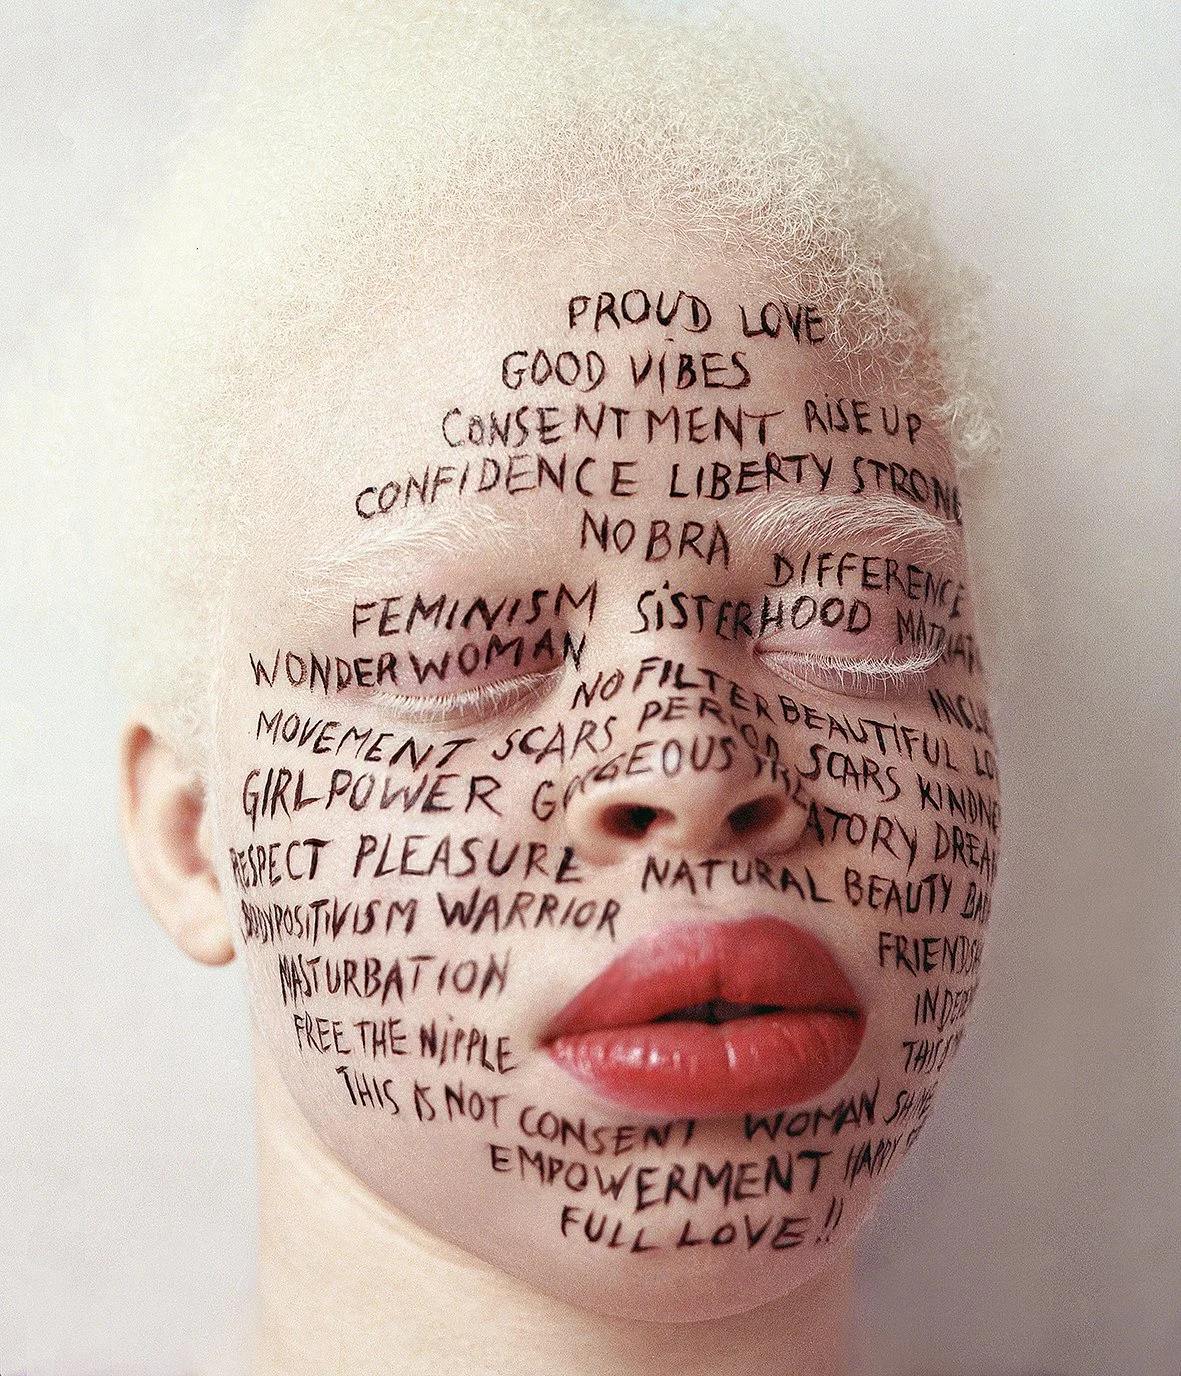 PROUD LOVE
GOOD ViBES
CONSENTMENT RiSE UP
CONFIDENCE LIBERTY STRONG
NO BRA
DIFFERENCE
FEMINISM SiSTERHOOD
WONDER WOMAN
NO FILTER BEAUTiFUL
MOVEMENT SCARS PERIOD SCARS
GIRL POWER GORGEOUS
RESPECT PLEASURE
NATURAL BEAUTY
BODYPOSITIVISM WARRIOR
MASTURBATION
FREE THE NiPPLE
THIS iS NOT CONSENT WOMAN
EMPOWERMENT HAPPY
FULL LOVE!!